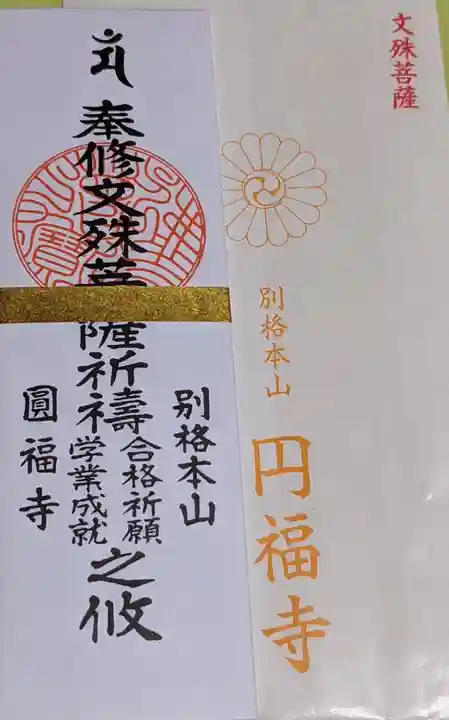 文殊菩薩
別格本山
円福寺
奉修文殊菩薩祈禱
合格祈願
学業成就
之攸
別格本山
圓福寺